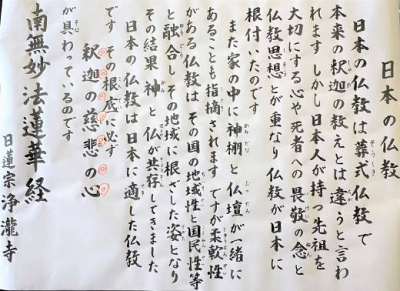 日本の仏教
日本の仏教は葬式仏教で
本来の釈迦の教えとは違うと言わ
れます しかし日本人が持つ先祖を
大切にする心や死者への畏敬の念と
仏教思想とが重なり仏教が日本に
根付いたのです
また家の中に神棚と仏壇が一緒に
あることも指摘されます ですが柔軟性
がある仏教はその国の地域性と国民性等
と融合しその地域に根ざした姿となり
その結果 神と仏が共存してきました
日本の仏教は日本に適した仏教
です その根底に必ず
釈迦の慈悲の心
が具わっているのです
南無妙法蓮華経
日蓮宗 浄瀧寺